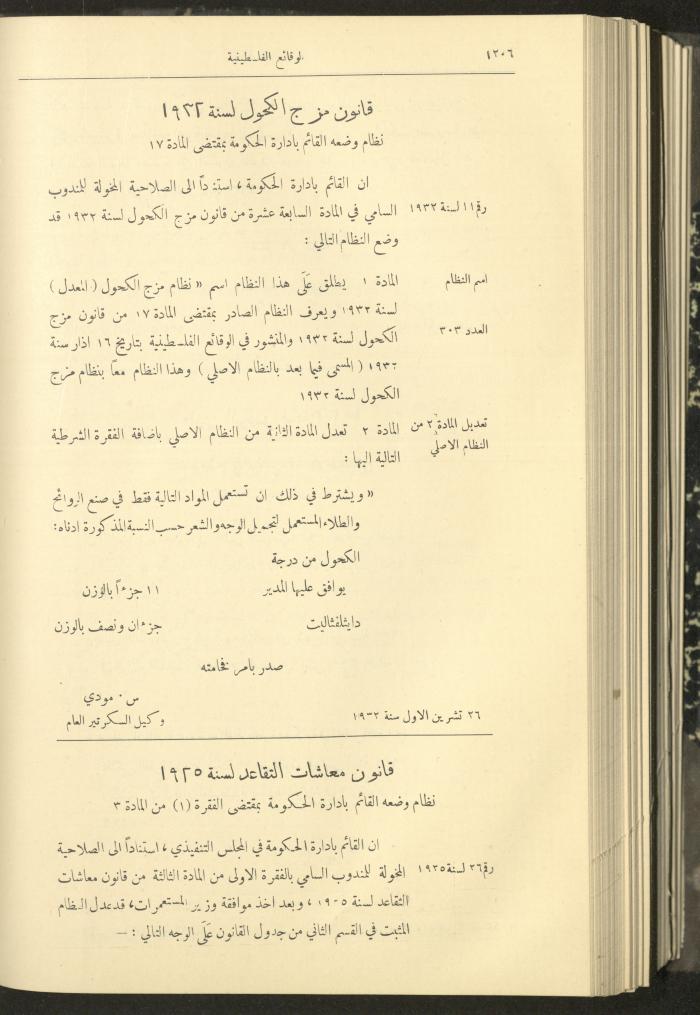 ١٢٠٦
الوقائع الفلسطينية
قانون مزج الكحول لسنة ١٩٣٢
نظام وضعه القائم بادارة الحكومة بمقتضى المادة ١٧
ان القائم بادارة الحكومة ، استناداً الى الصلاحية المخولة للمندوب
رقم ١١ لسنة ١٩٣٢
السامي في المادة السابعة عشرة من قانون مزج الكحول لسنة ١٩٣٢ قد
وضع النظام التالي :
اسم النظام
المادة ١ يطلق عَلَى هذا النظام اسم « نظام مزج الكحول ( المعدل )
لسنة ١٩٣٢ ويعرف النظام الصادر بمقتضى المادة ١٧ من قانون مزج
العدد ٣٠٣
الكحول لسنة ١٩٣٢ والمنشور في الوقائع الفلسطينية بتاريخ ١٦ اذار سنة
١٩٣٢ ( المسمى فيما بعد بالنظام الاصلي ) وهذا النظام معاً بنظام مزج
الكحول لسنة ١٩٣٢
تعديل المادة ٢ من
النظام الاصلي
المادة ٢ تعدل المادة الثانية من النظام الاصلي باضافة الفقرة الشرطية
التالية اليها :
« ويشترط في ذلك ان تستعمل المواد التالية فقط في صنع الروائح
والطلاء المستعمل لتجميل الوجه والشعر حسب النسبة المذكورة ادناه :
الكحول من درجة
يوافق عليها المدير ١١ جزءاً بالوزن
دايثلفثاليت جزءان ونصف بالوزن
صدر بامر فخامته
س . مودي
٢٦ تشرين الاول سنة ١٩٣٢
وكيل السكرتير العام
قانون معاشات التقاعد لسنة ١٩٢٥
نظام وضعه القائم بادارة الحكومة بمقتضى الفقرة (١) من المادة ٣
ان القائم بادارة الحكومة في المجلس التنفيذي ، استناداً الى الصلاحية
رقم ٢٦ لسنة ١٩٢٥
المخولة للمندوب السامي بالفقرة الاولى من المادة الثالثة من قانون معاشات
التقاعد لسنة ١٩٢٥ ، وبعد اخذ موافقة وزير المستعمرات ، قد عدل النظام
المثبت في القسم الثاني من جدول القانون عَلَى الوجه التالي : —